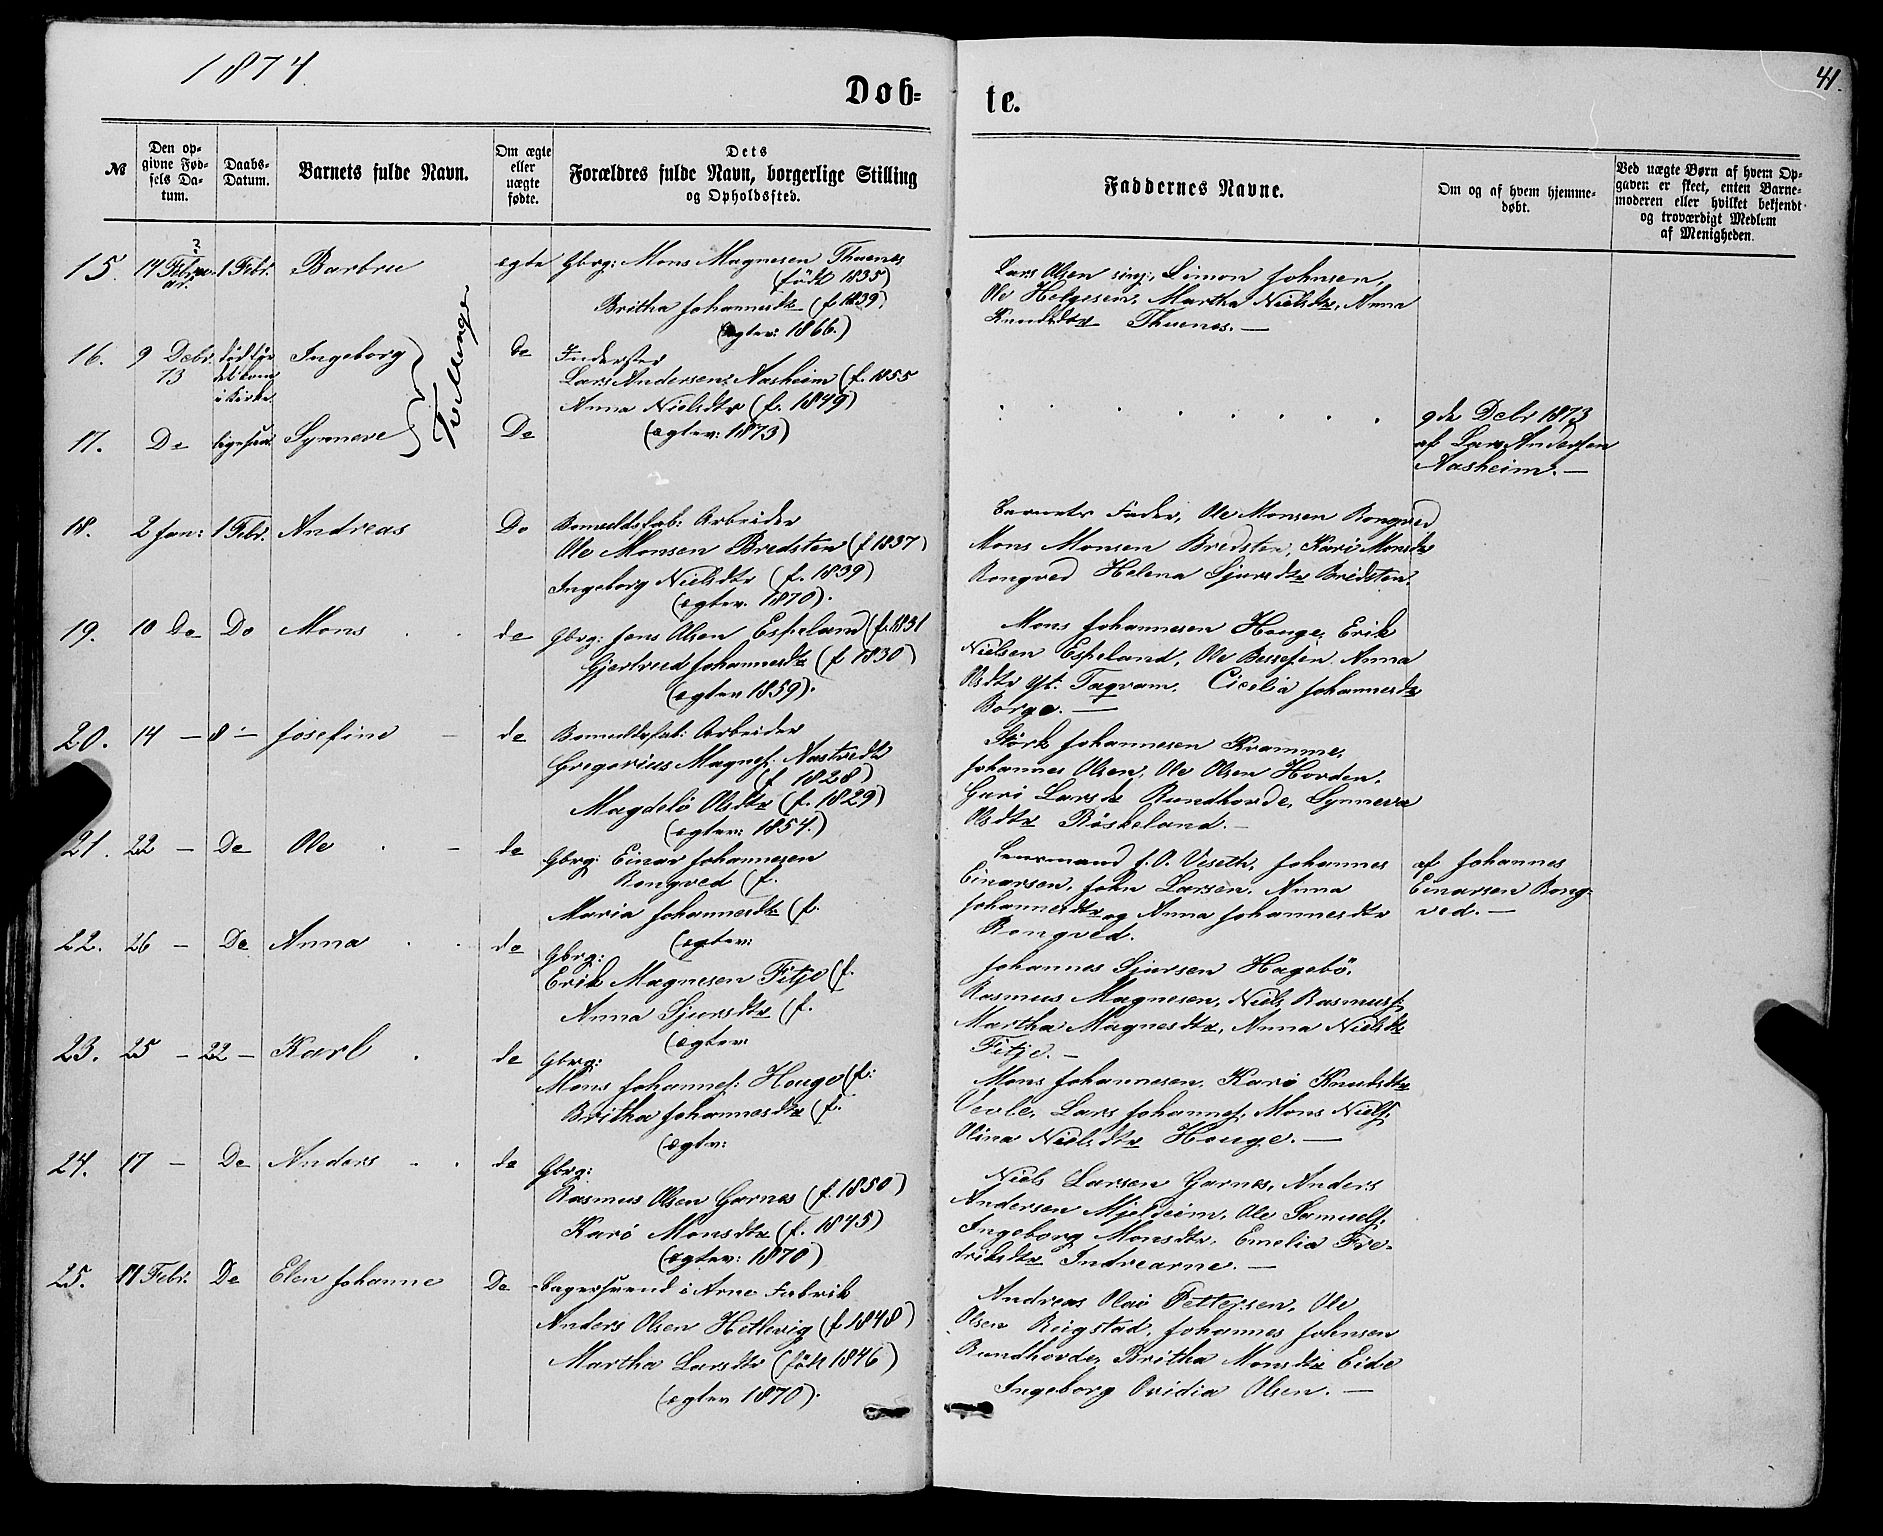 1874.
41.
Døb-
te.
№
Den op-
givne Fød-
sels Da-
tum.
Daabs-
Datum.
Barnets fulde Navn.
Om ægte
eller
uægte
fødte.
Dets
Forældres fulde Navn, borgerlige Stilling
og Opholdssted.
Faddernes Navne.
Om og af hvem hjemme-
døbt.
Ved uægte Børn af hvem Op-
gaven er skeet, enten Barne-
moderen eller hvilket bekjendt
og troværdigt Medlem
af Menigheden.
15. 14 1 Febr. Barbru ægte Gbrg: Mons Magnesen Thunes
(født 1835)
Britha Johannesdtr (f. 1839)
(ægtev: 1866.)
Lars Olsen Simon Johnsen,
Ole Helgesen, Martha Nielsdtr, Anna
Knudsdtr Thunes. —
16. 9 Decbr. 73 død før det kom i Kirke Ingeborg de Inderster
Lars Andersen Aasheim (f. 1855
Anna Nielsdtr (f. 1849)
Tvillinger
17. Do ligesaa Synneve Do (ægtev: 1873)
9de Decbr 1873
af Lars Andersen
Aasheim. —
18. 2 Jan: 1 Febr. Andreas Do Bomuldsfab: Arbeider
Ole Monsen Bredsten (f 1837)
Ingeborg Nielsdtr (f. 1839)
(ægtev. 1870).
Barnets Fader, Ole Monsen Rongved
Mons Monsen Bredsten, Kari Monsdtr
Rongved Helena Sjursdtr Bredsten.
19. 10 Do Do Mons de Gbrg: Jens Olsen Espeland (f. 1831
Gjertrud Johannesdtr (f 1830)
(ægtev 1859).
Mons Johannesen Houge, Erik
Nielsen Espeland, Ole Anna
Olsdtr Yt. Taqvam, Cicelia Johannesdtr
Borge. —
20. 14 — 8 — Josefine — de Bomuldsfab: Arbeider
Gregorius Magnes: Nastvedt
(f 1828)
Magdeli Olsdtr (f. 1829)
(ægtev: 1854.)
Størk Johannesen Kramme,
Johannes Olsen, Ole Olsen Horden,
Guri Larsdtr Rundhovde, Synneva
Olsdtr Røskeland. —
21. 22 — Do Ole — de Gbrg: Einar Johannesen
Rongved (f.
Maria Johannesdtr (f.
(ægtev:
Lensmand J. O. Veseth, Johannes
Einarsen, John Larsen, Anna
Johannesdtr og Anna Johannesdtr
Rongved.
af Johannes
Einarsen Rong-
ved. —
22. 26 — Do Anna de Gbrg:
Erik Magnesen Fitje (f.
Anna Sjursdtr (f.
(ægtev:
Johannes Sjursen Hagebö,
Rasmus Magnesen, Niels Rasmuss:
Martha Magnesdtr, Anna Nielsdtr
Fitje. —
23. 25 — 22 — Karl de Gbrg:
Mons Johannes: Houge (f:
Britha Johannesdtr (f.
(ægtev:
Mons Johannesen, Kari Knudsdtr
Vevle, Lars Johannes: Mons Niels:
Olina Nielsdtr Houge. —
24. 17 — Do Anders de Gbrg:
Rasmus Olsen Garnes (f. 1850)
Kari Monsdtr (f. 1845)
(ægtev: 1870)
Niels Larsen Garnes, Anders
Andersen Mjeldeim, Ole Samuels:
Ingeborg Monsdtr, Emelia Fre-
driksdtr Indrearne. —
25. 11 Febr. Do Elen Johanne Do Bagersvend i Arne Fabrik
Anders Olsen Hetlevig (f 1848)
Martha Larsdtr (født 1846)
(ægtev 1870).
Andreas Olai Pettersen, Ole
Olsen Riigstad, Johannes Johnsen
Rundhovde, Britha Monsdtr Eide
Ingeborg Ovidia Olsen. —